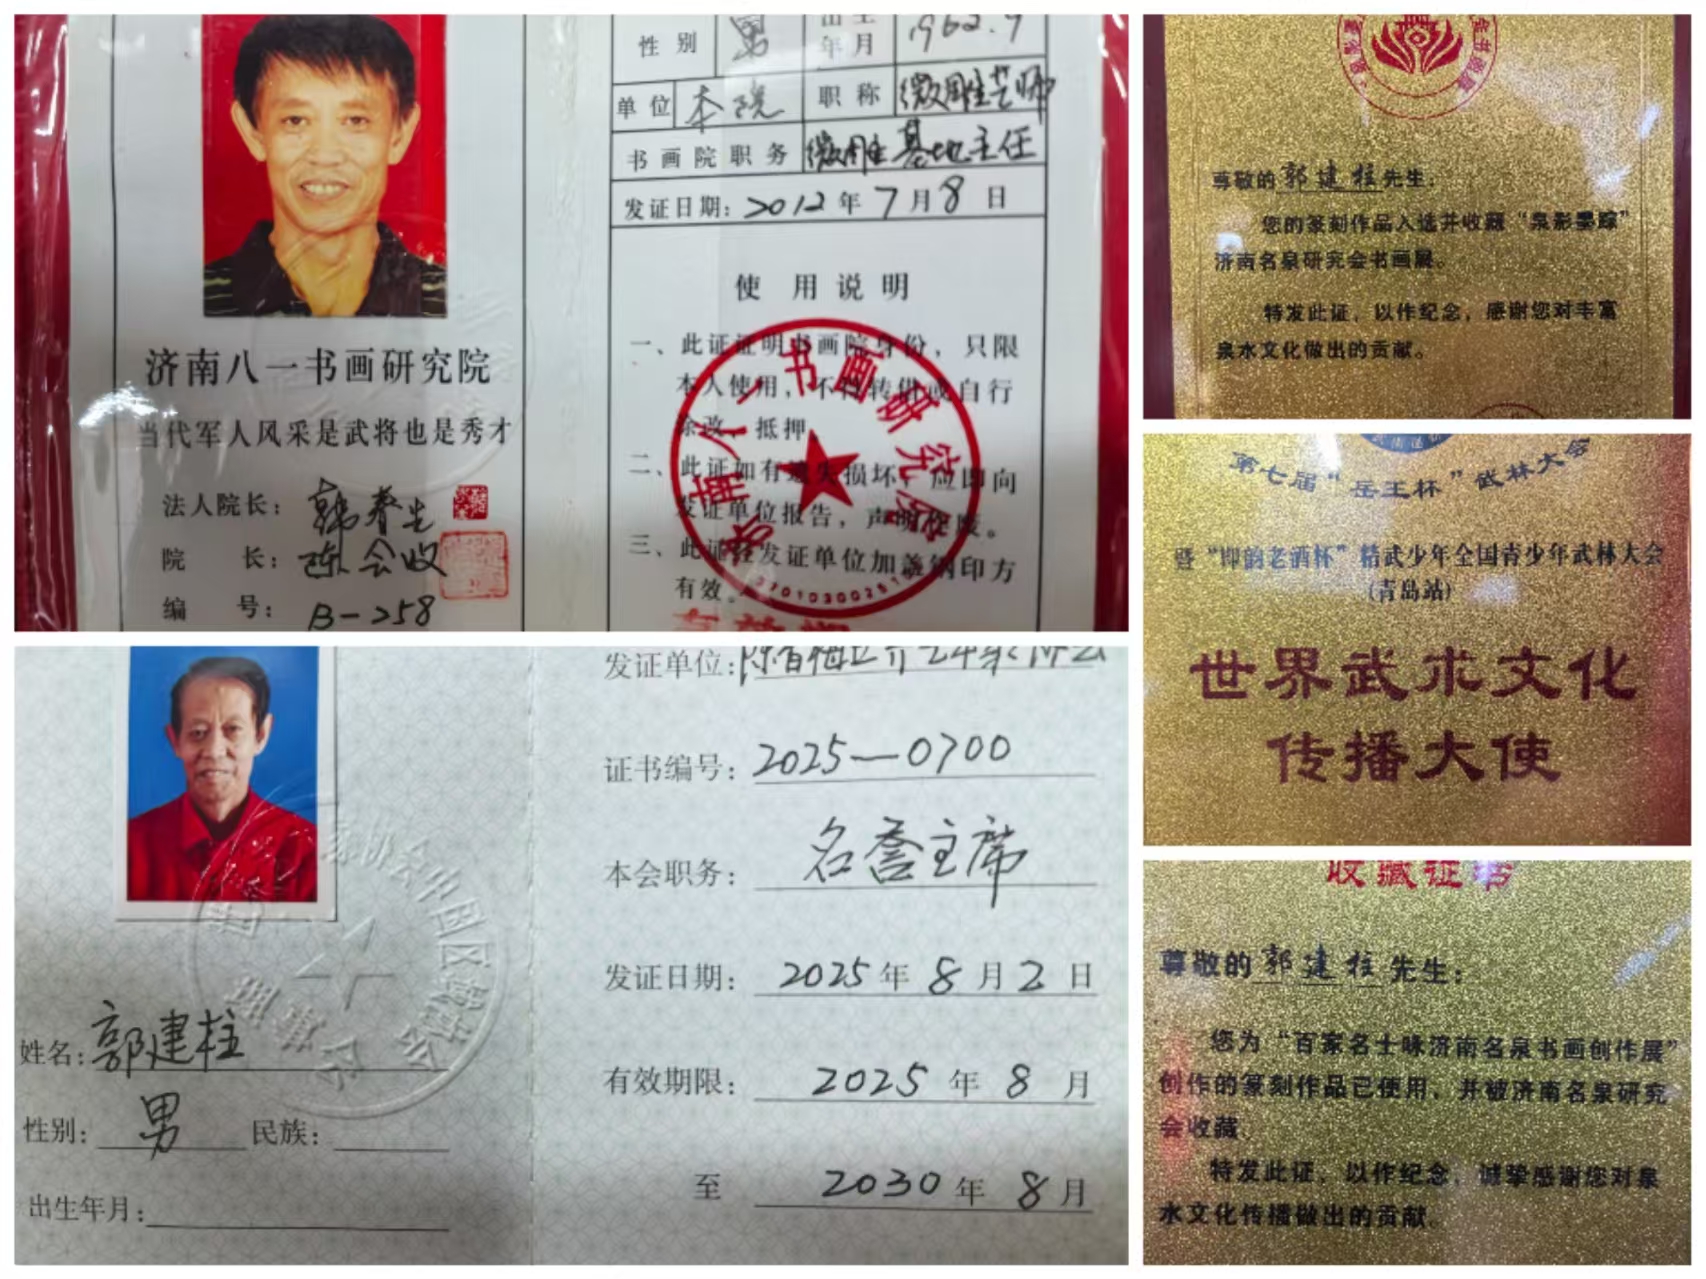 性别 男 出生年月 1962.9
单位 本院 职称 微雕艺师
书画院职务 微雕基地主任
发证日期: 2012年7月8日
济南八一书画研究院
当代军人风采是武将也是秀才
法人院长: 韩春生
院长: 陈会收
编号: B-258
使用说明
一、此证证明书画院身份，只限
本人使用，不得转借或自行
涂改、抵押。
二、此证如有遗失损坏，应即向
发证单位报告，声明作废。
三、此证经发证单位加盖钢印方
有效。
济南八一书画研究院
尊敬的郭建柱先生:
您的篆刻作品入选并收藏“泉影墨踪”
济南名泉研究会书画展。
特发此证，以作纪念，感谢您对丰富
泉水文化做出的贡献。
第七届“岳王杯”武林大会
暨“即韵老酒杯”精武少年全国青少年武林大会
(青岛站)
世界武术文化
传播大使
发证单位:
证书编号: 2025—0700
本会职务: 名誉主席
发证日期: 2025年8月2日
有效期限: 2025年8月
至 2030年8月
姓名: 郭建柱
性别: 男 民族:
出生年月:
收藏证书
尊敬的郭建柱先生:
您为“百家名士咏济南名泉书画创作展”
创作的篆刻作品已使用，并被济南名泉研究
会收藏。
特发此证，以作纪念，诚挚感谢您对泉
水文化传播做出的贡献。